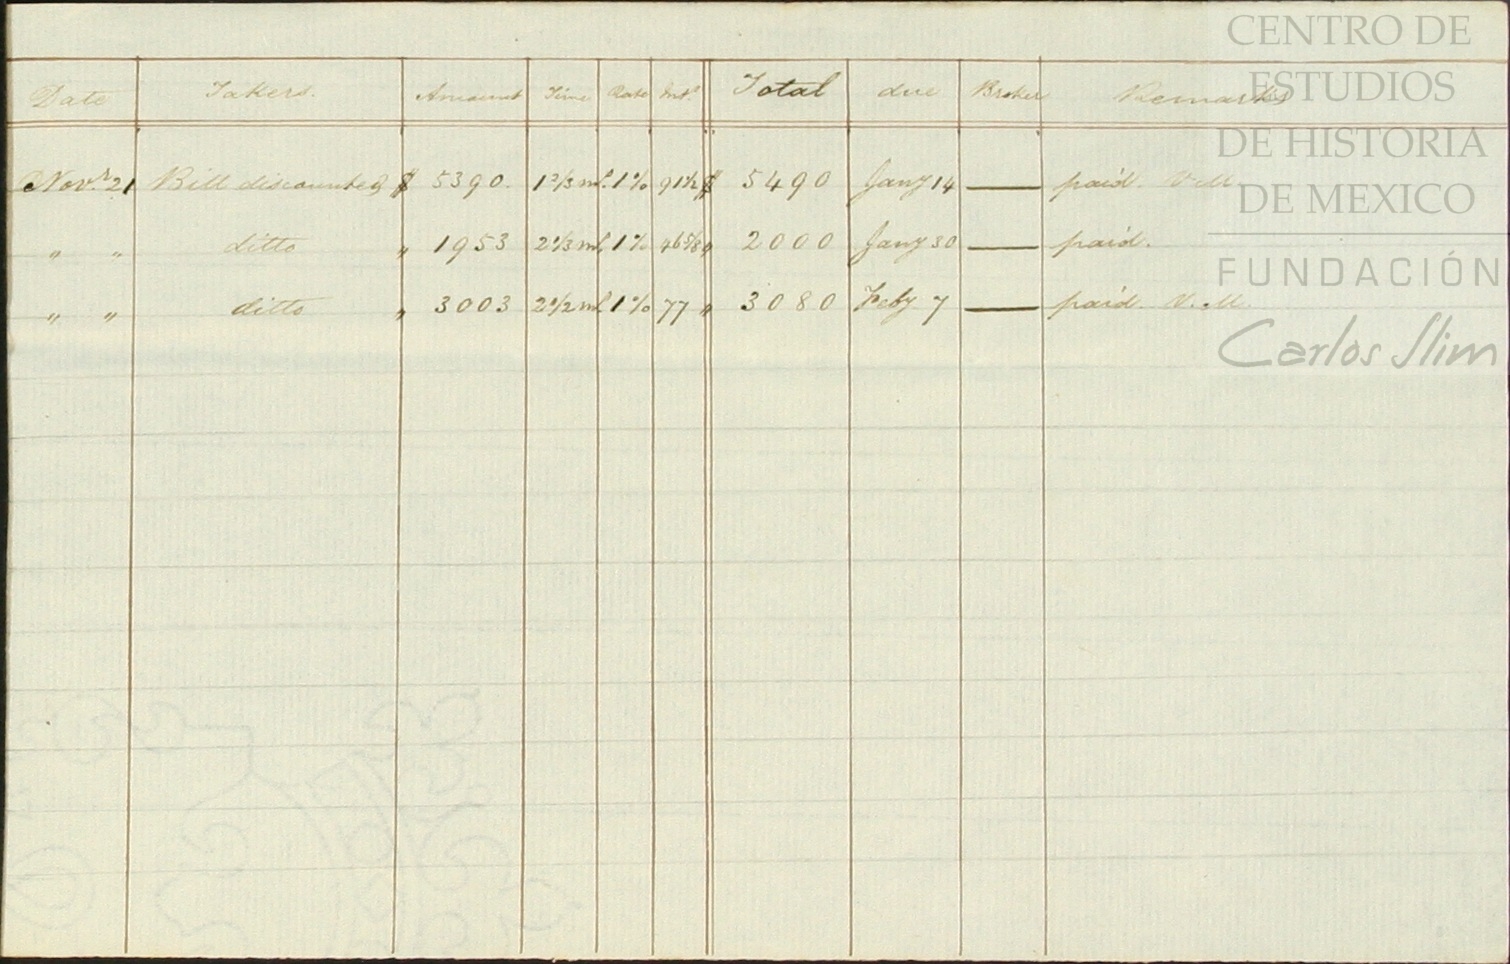 Date Takers. Amount Time Rate Int.t Total due Broker Remarks
Nov.r 21 Bill discounted $ 5390. 1 2/3 m.s 1% 91 1/2 $ 5490 Jany 14 —— paid. V. M.
" " ditto " 1953 2 1/3 m.s 1% 46 5/8 " 2000 Jany 30 —— paid.
" " ditto " 3003 2 1/2 m.s 1% 77 " 3080 Feby 7 —— paid. V. M.
CENTRO DE
ESTUDIOS
DE HISTORIA
DE MEXICO
FUNDACIÓN
Carlos Slim